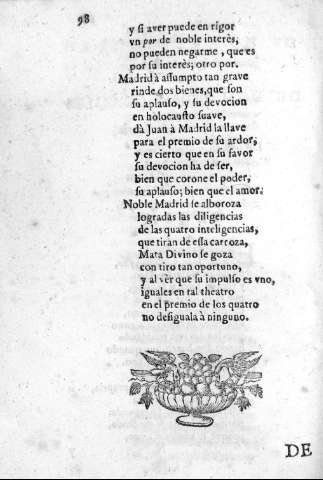 98
y si aver puede en rigor
vn por de noble interès,
no pueden negarme, que es
por su interès; otro por.
Madrid à assumpto tan grave
rinde dos bienes, que son
su aplauso, y su devocion
en holocausto suave,
dà Juan à Madrid la llave
para el premio de su ardor,
y es cierto que en su favor
su devocion ha de ser,
bien que corone el poder,
su aplauso; bien que el amor.
Noble Madrid se alboroza
logradas las diligencias
de las quatro inteligencias,
que tiran de essa carroza,
Mata Divino se goza
con tiro tan oportuno,
y al vèr que su impulso es vno,
iguales en tal theatro
en el premio de los quatro
no desiguala à ninguno.
DE